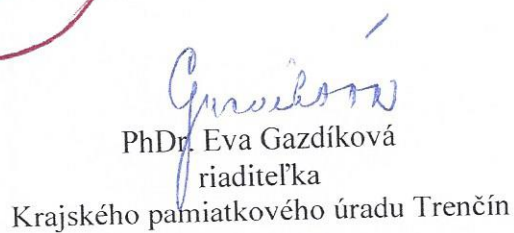 PhDr. Eva Gazdíková
riaditeľka
Krajského pamiatkového úradu Trenčín